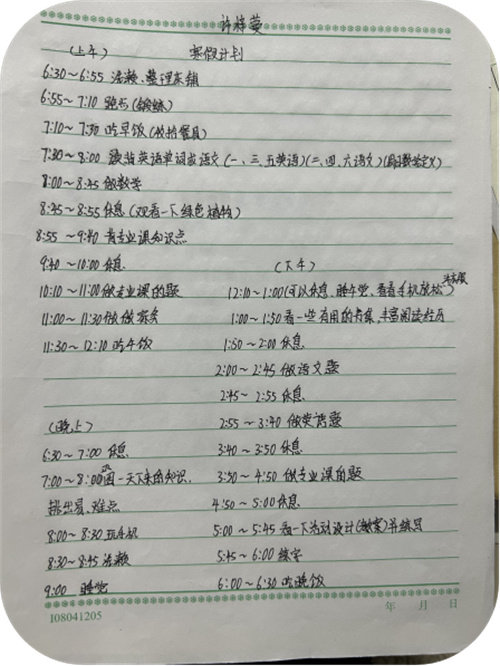 许梓萱
寒假计划
(上午)
6:30~6:55 洗漱、整理床铺
6:55~7:10 跑步(锻炼)
7:10~7:30 吃早饭(收拾餐具)
7:30~8:00 背英语单词或语文(一、三、五英语)(二、四、六语文)(周日数学定义)
8:00~8:45 做数学
8:45~8:55 休息(观看一下绿色植物)
8:55~9:40 背专业课知识点
9:40~10:00 休息
10:10~11:00 做专业课的题
11:00~11:30 做做家务
11:30~12:10 吃午饭
(下午)
12:10~1:00(可以休息、睡午觉、看看手机放松)
1:00~1:50 看一些有用的书籍,丰富阅读经历
1:50~2:00 休息
2:00~2:45 做语文题
2:45~2:55 休息
2:55~3:40 做英语题
3:40~3:50 休息
3:50~4:50 做专业课的题
4:50~5:00 休息
5:00~5:45 看一下活动设计(教案)并练习
5:45~6:00 练字
6:00~6:30 吃晚饭
(晚上)
6:30~7:00 休息
7:00~8:00 巩固一天下来的知识,
挑出易、难点
8:00~8:30 玩手机
8:30~8:45 洗漱
9:00 睡觉
108041205
年 月 日